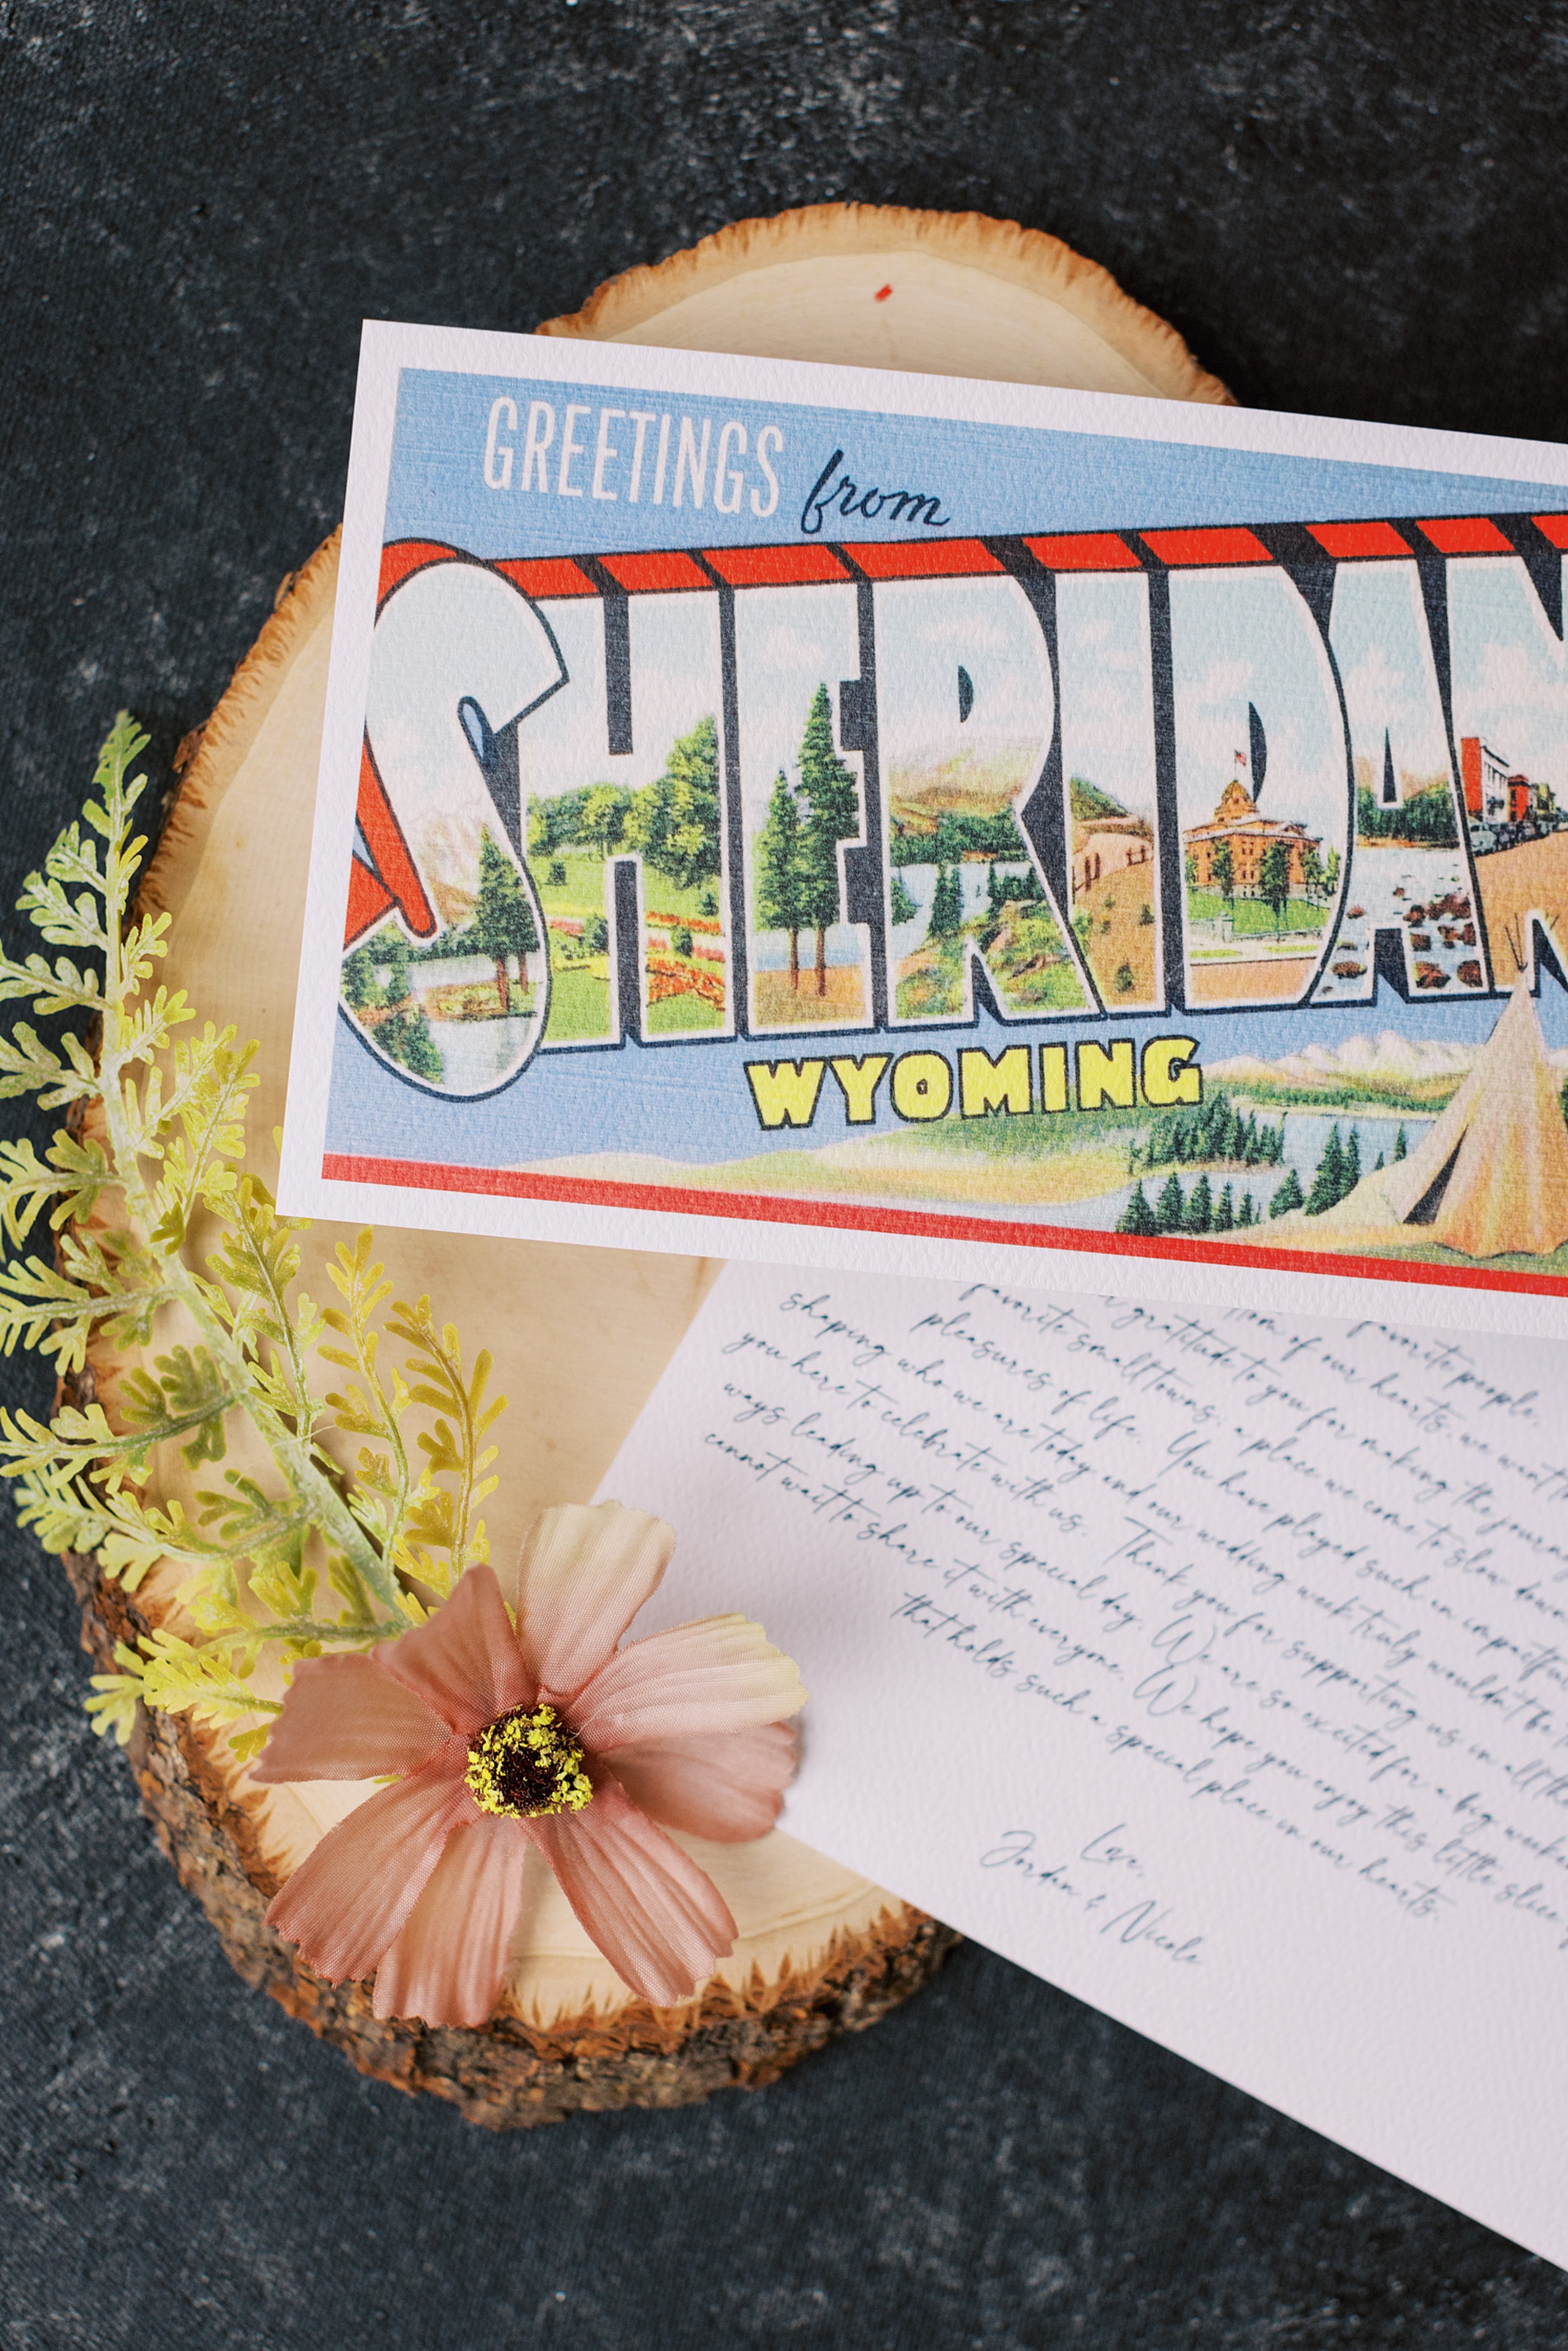 GREETINGS from
SHERIDAN
WYOMING
favorite people.
of our hearts, we want
gratitude to you for making the journey
favorite small towns, a place we come to slow down
pleasures of life. You have played such an impactful
shaping who we are today and our wedding week truly wouldn't be
you here to celebrate with us. Thank you for supporting us in all the
ways leading up to our special day. We are so excited for a big
cannot wait to share it with everyone. We hope you enjoy this little slice
that holds such a special place in our hearts.
Love,
Jordan & Nicole